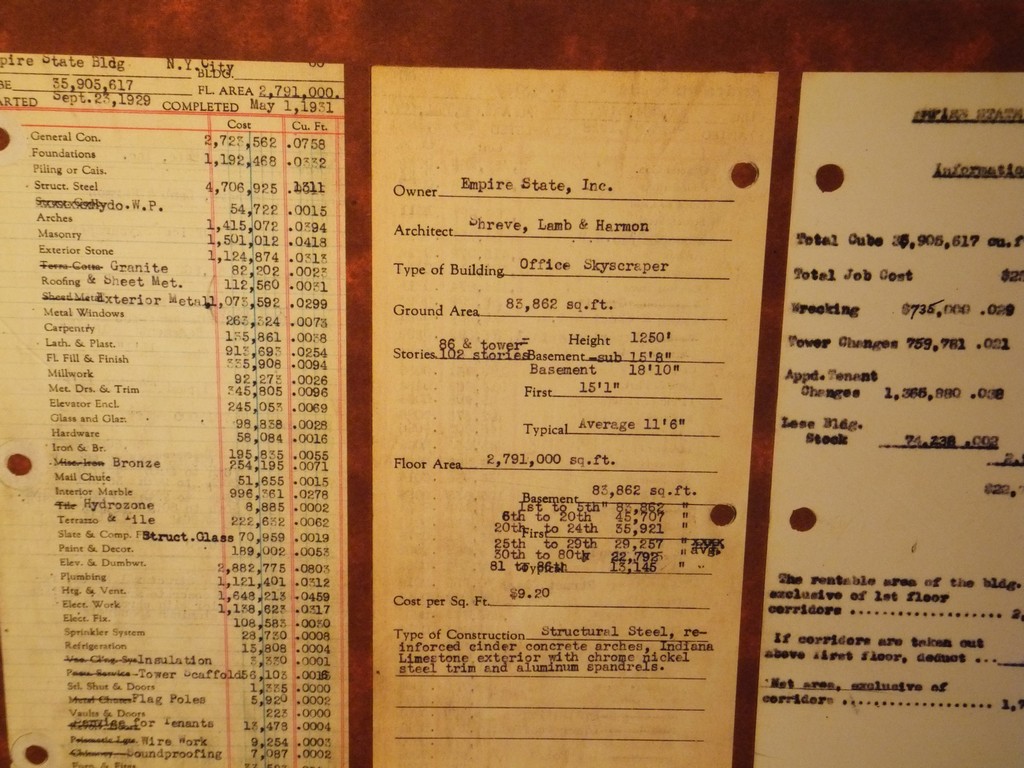 pire State Bldg N.Y.City
BLDG.
BE 35,905,617 FL. AREA 2,791,000.
ARTED Sept.23,1929 COMPLETED May 1,1931
Cost Cu. Ft.
General Con. 2,723,562 .0758
Foundations 1,192,468 .0332
Piling or Cais.
Struct. Steel 4,706,925 .1311
Hydo.W.P. 54,722 .0015
Arches 1,415,072 .0394
Masonry 1,501,012 .0418
Exterior Stone 1,124,874 .0313
Terra Cotta Granite 82,202 .0023
Roofing & Sheet Met. 112,560 .0031
Sheet Metal Exterior Metal 1,073,592 .0299
Metal Windows 263,324 .0073
Carpentry 135,861 .0038
Lath. & Plast. 913,693 .0254
Fl. Fill & Finish 335,908 .0094
Millwork 92,273 .0026
Met. Drs. & Trim 345,805 .0096
Elevator Encl. 245,053 .0069
Glass and Glaz. 98,838 .0028
Hardware 58,084 .0016
Iron & Br. 195,835 .0055
Misc. Iron Bronze 254,195 .0071
Mail Chute 51,655 .0015
Interior Marble 996,361 .0278
Tile Hydrozone 8,885 .0002
Terrazzo & Tile 222,632 .0062
Slate & Comp. F Struct.Glass 70,959 .0019
Paint & Decor. 189,002 .0053
Elev. & Dumbwr. 2,882,775 .0803
Plumbing 1,121,401 .0312
Htg. & Vent. 1,648,213 .0459
Elect. Work 1,138,623 .0317
Elect. Fix. 108,583 .0030
Sprinkler System 28,730 .0008
Refrigeration 15,808 .0004
Vac. Clng. Sys Insulation 3,330 .0001
Service Tower Scaffold 56,103
Stl. Shut & Doors 1,335 .0000
Metal Chutes Flag Poles 5,920 .0002
Vaults & Doors 223 .0000
for Tenants 13,478 .0004
Wire Work 9,254 .0003
Chimney Soundproofing 7,087 .0002
Owner Empire State, Inc.
Architect Shreve, Lamb & Harmon
Type of Building Office Skyscraper
Ground Area 83,862 sq.ft.
86 & tower- Height 1250'
Stories 102 stories Basement -sub 15'8"
Basement 18'10"
First 15'1"
Typical Average 11'6"
Floor Area 2,791,000 sq.ft.
Basement 83,862 sq.ft.
1st to 5th" 83,862 "
6th to 20th 45,707 "
20th First to 24th 35,921 "
25th to 29th 29,257 "
30th to 80th 22,792 " avg.
81 to 86th Typical 13,145 "
Cost per Sq. Ft. $9.20
Type of Construction Structural Steel, re-
inforced cinder concrete arches, Indiana
Limestone exterior with chrome nickel
steel trim and aluminum spandrels.
EMPIRE STATE
Informatio
Total Cube 35,905,617 cu.f
Total Job Cost
Wrecking $735,000 .029
Tower Changes 759,781 .021
Appd.Tenant
Changes 1,365,880 .038
Less Bldg.
Stock 74,238 .002
The rentable area of the bldg.
exclusive of 1st floor
corridors .................. 2,
If corridors are taken out
above first floor, deduct ...
Net area, exclusive of
corridors .................. 1,7